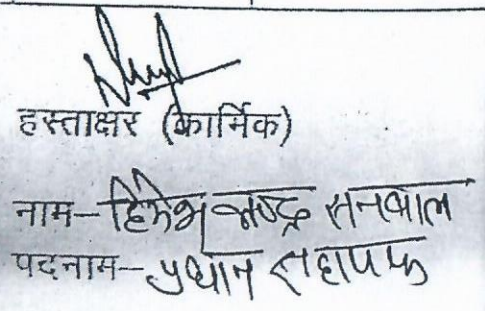 हस्ताक्षर (कार्मिक)
नाम- चन्द्र सनवाल
पदनाम- प्रधान सहायक